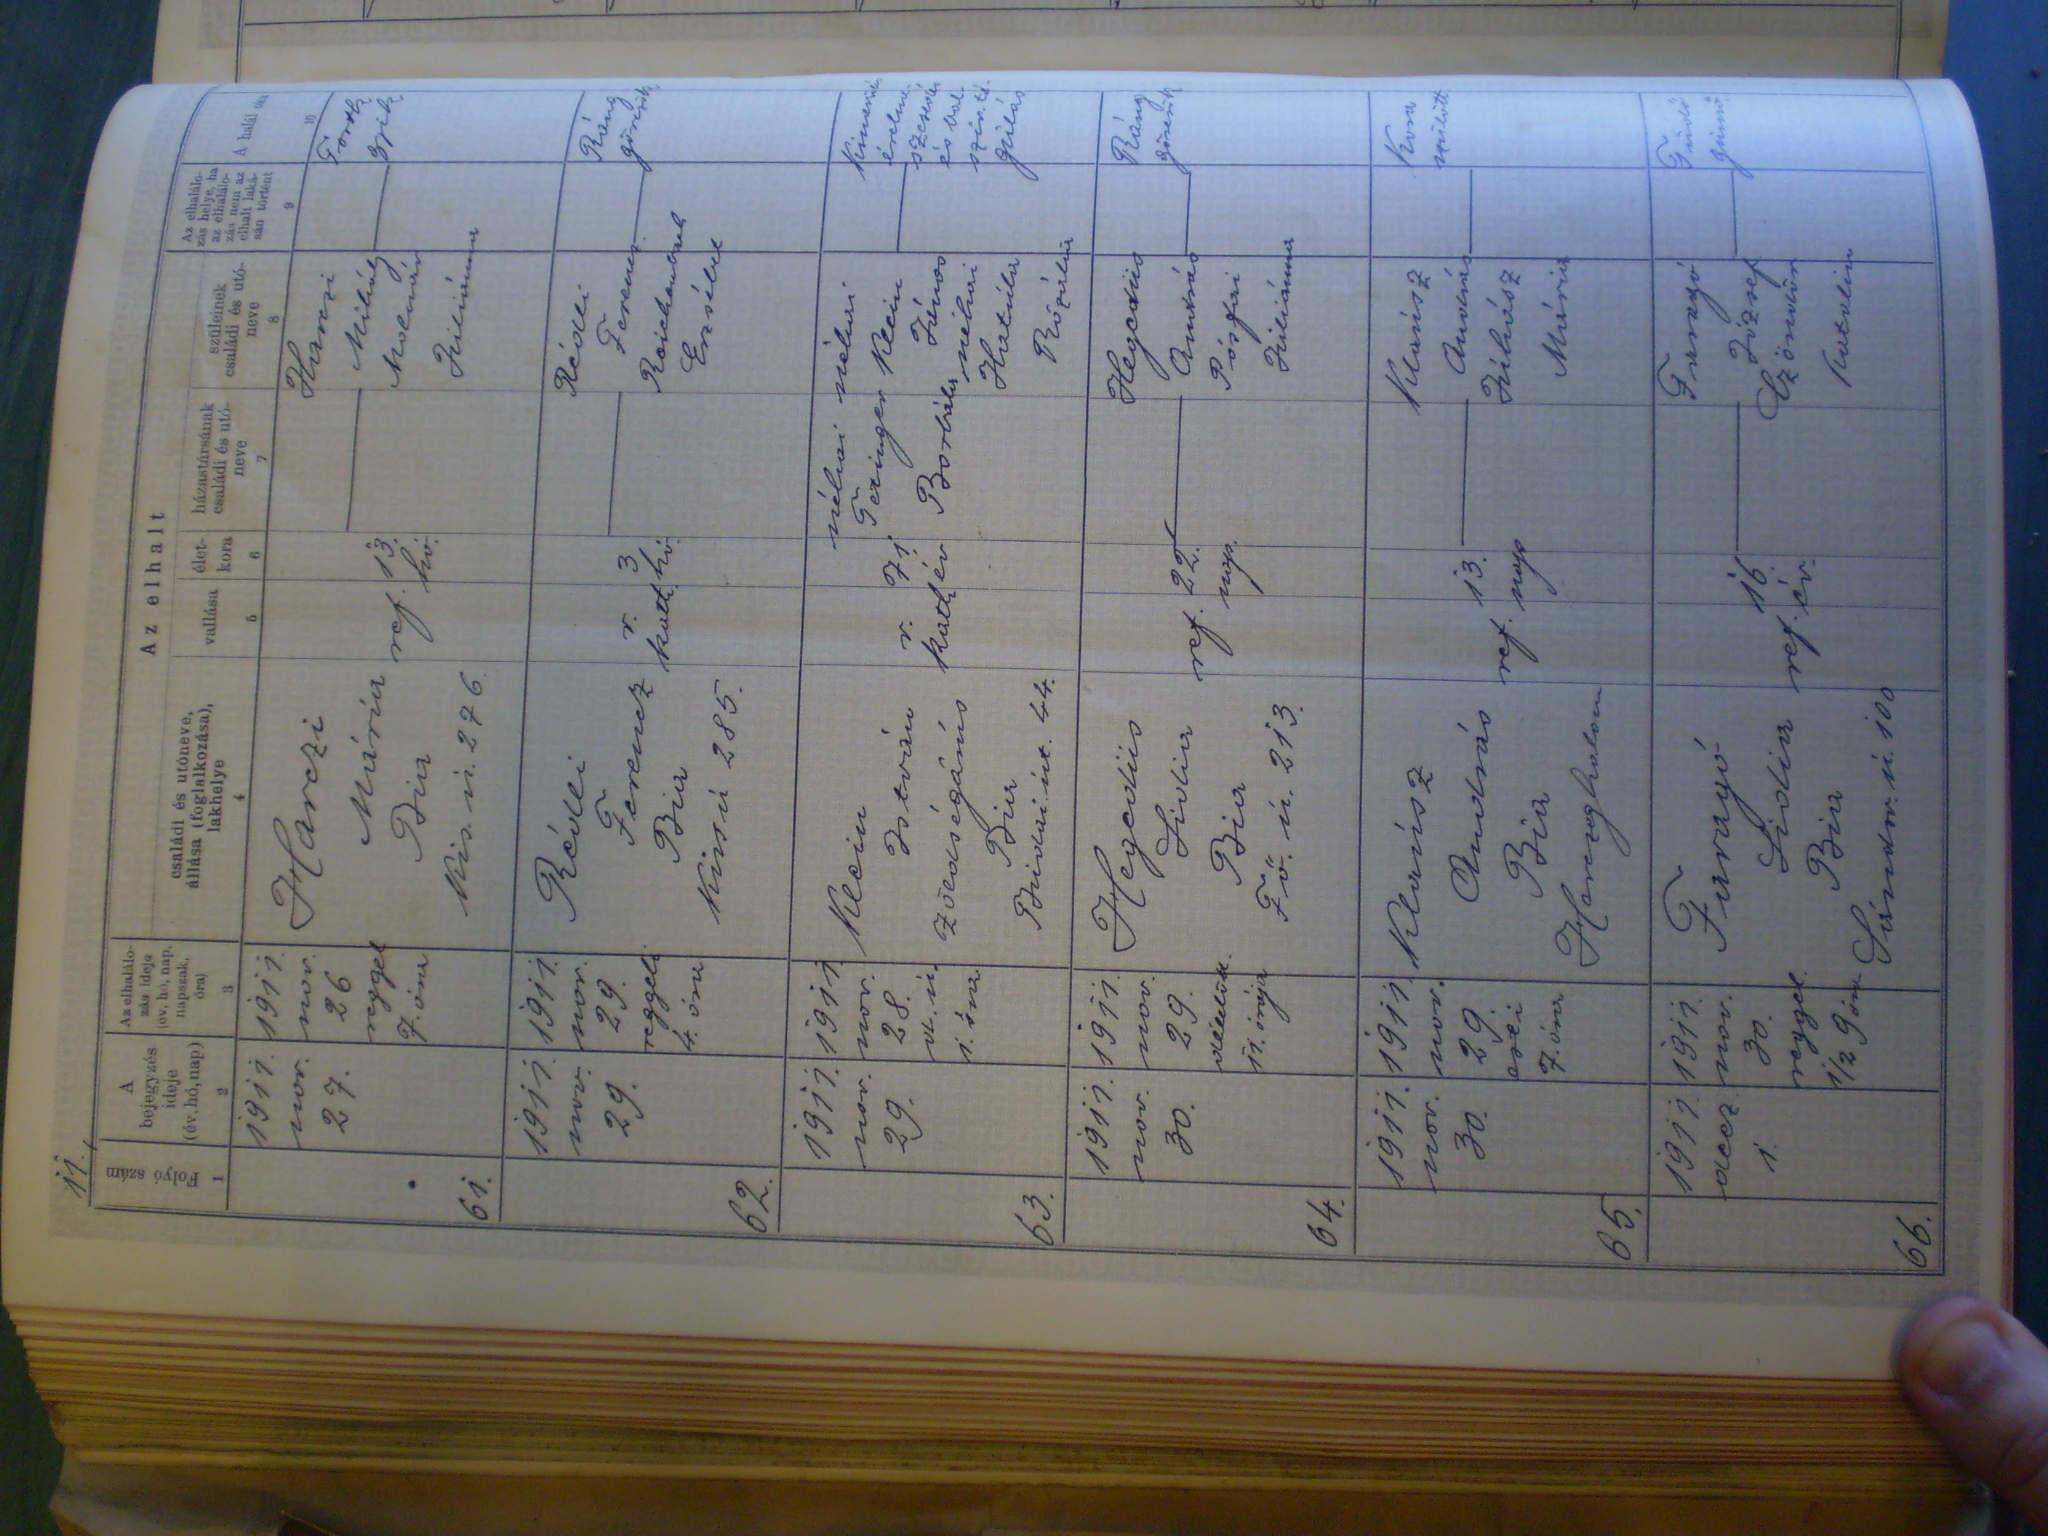 11.
Az elhalt
Folyó szám
A bejegyzés ideje (év, hó, nap)
Az elhalálozás ideje (év, hó, nap, napszak, óra)
családi és utóneve, állása (foglalkozása), lakhelye
vallása
életkora
házastársának családi és utóneve
szüleinek családi és utóneve
Az elhalálozás helye, ha az elhalálozás nem az elhalt lakásán történt
A halál oka
1 2 3 4 5 6 7 8 9 10
61.
1911.
nov.
27.
1911.
nov.
26
reggel
7. óra
Harczi
Mária
Bia
Kis. u. 276.
ref.
13.
hó.
Harczi
Mihály
Molnár
Juliánna
62.
1911.
nov.
29.
1911.
nov.
29.
reggeli
4. óra
Rédli
Ferencz
Bia
Kis u 285.
r.
kath.
3
hó.
Rédli
Ferencz
Erzsébet
Ráng
görcsök
63.
1911.
nov.
29.
1911.
nov.
28.
1. óra
Klein
István
zöldségárus
Bia
Budai. út. 44.
r.
kath
71
év
néhai
Borbála
néhai
Klein
János
néhai
Rozália
64.
1911.
nov.
30.
1911.
nov.
29.
délelőtt.
11. órája
Hegedüs
Lidia
Bia
Fő. u. 213.
ref.
22.
nap.
Hegedüs
András
Juliánna
Ráng
görcsök
65.
1911.
nov.
30.
1911.
nov.
29.
esti
7. óra
Klárisz
András
Bia
Herczeghalom
ref.
13.
nap
Klárisz
András
Juhász
Mária
Kora
szülött
66.
1911.
decz.
1.
1911.
nov.
30.
reggel.
1/2 9 óra
Faragó
Lidia
Bia
Sándor. u. 100
ref.
16.
év.
Faragó
József
Katalin
Tüdő
gümő